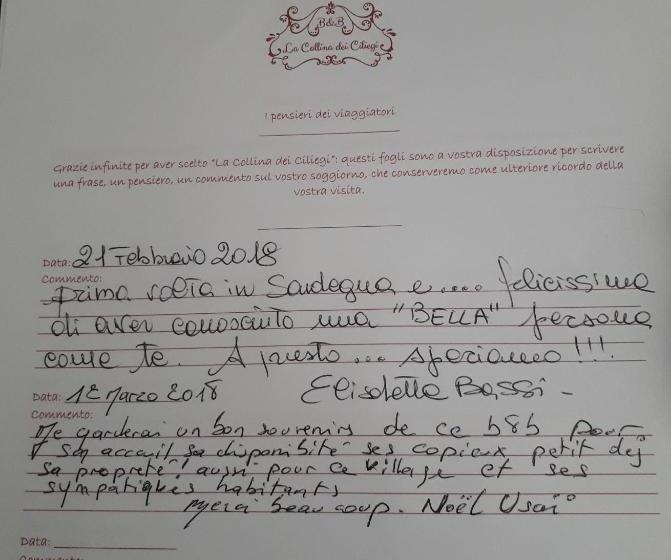 B&B
La Collina dei Ciliegi
I pensieri dei viaggiatori
Grazie infinite per aver scelto "La Collina dei Ciliegi": questi fogli sono a vostra disposizione per scrivere
una frase, un pensiero, un commento sul vostro soggiorno, che conserveremo come ulteriore ricordo della
vostra visita.
Data: 21 Febbraio 2018
Commento:
prima volta in Sardegna e.... felicissima
di aver conosciuto una "BELLA" persona
come te. A presto... speriamo!!!
Elisabetta Bassi -
Data: 12 Marzo 2018
Commento:
Je garderai un bon souvenirs de ce b&b pour
son accueil sa disponibité ses copieux petit dej
sa propreté! aussi pour ce village et ses
sympatiques habitants
merci beaucoup. Noël Usai
Data: